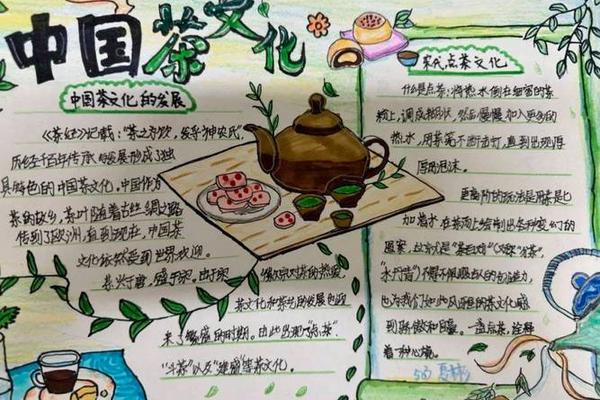 中国茶文化
中国茶文化的发展
《茶经》记载："茶之为饮，发乎神农氏"
历经千百年传承与发展形成了独
具特色的中国茶文化，中国作为
茶的故乡，茶叶随着古丝绸之路
传到了欧洲，直到现在，中国茶
文化依然受到世界欢迎。
茶兴于唐，盛于宋，由于宋
徽宗对茶的热爱，
茶文化和茶艺的发展也迎
来了繁盛的时期。由此出现"点茶"
"斗茶"以及
等茶文化。
宋代点茶文化
什么是点茶：将热水倒在细密的茶
粉上，调成糊状，然后慢慢加入更多的
热水，用茶筅不断击打，直到出现厚
厚的泡沫。
更高阶的玩法是用茶匙
加清水，在茶汤上绘制出各种变幻的
图案，这就是"茶百戏"又称"分茶"，
"水丹青"不得不佩服古人的创造力，
也为我们如此风雅的茶文化感
到骄傲和自豪。一盏点茶，诠释
着一种心境。